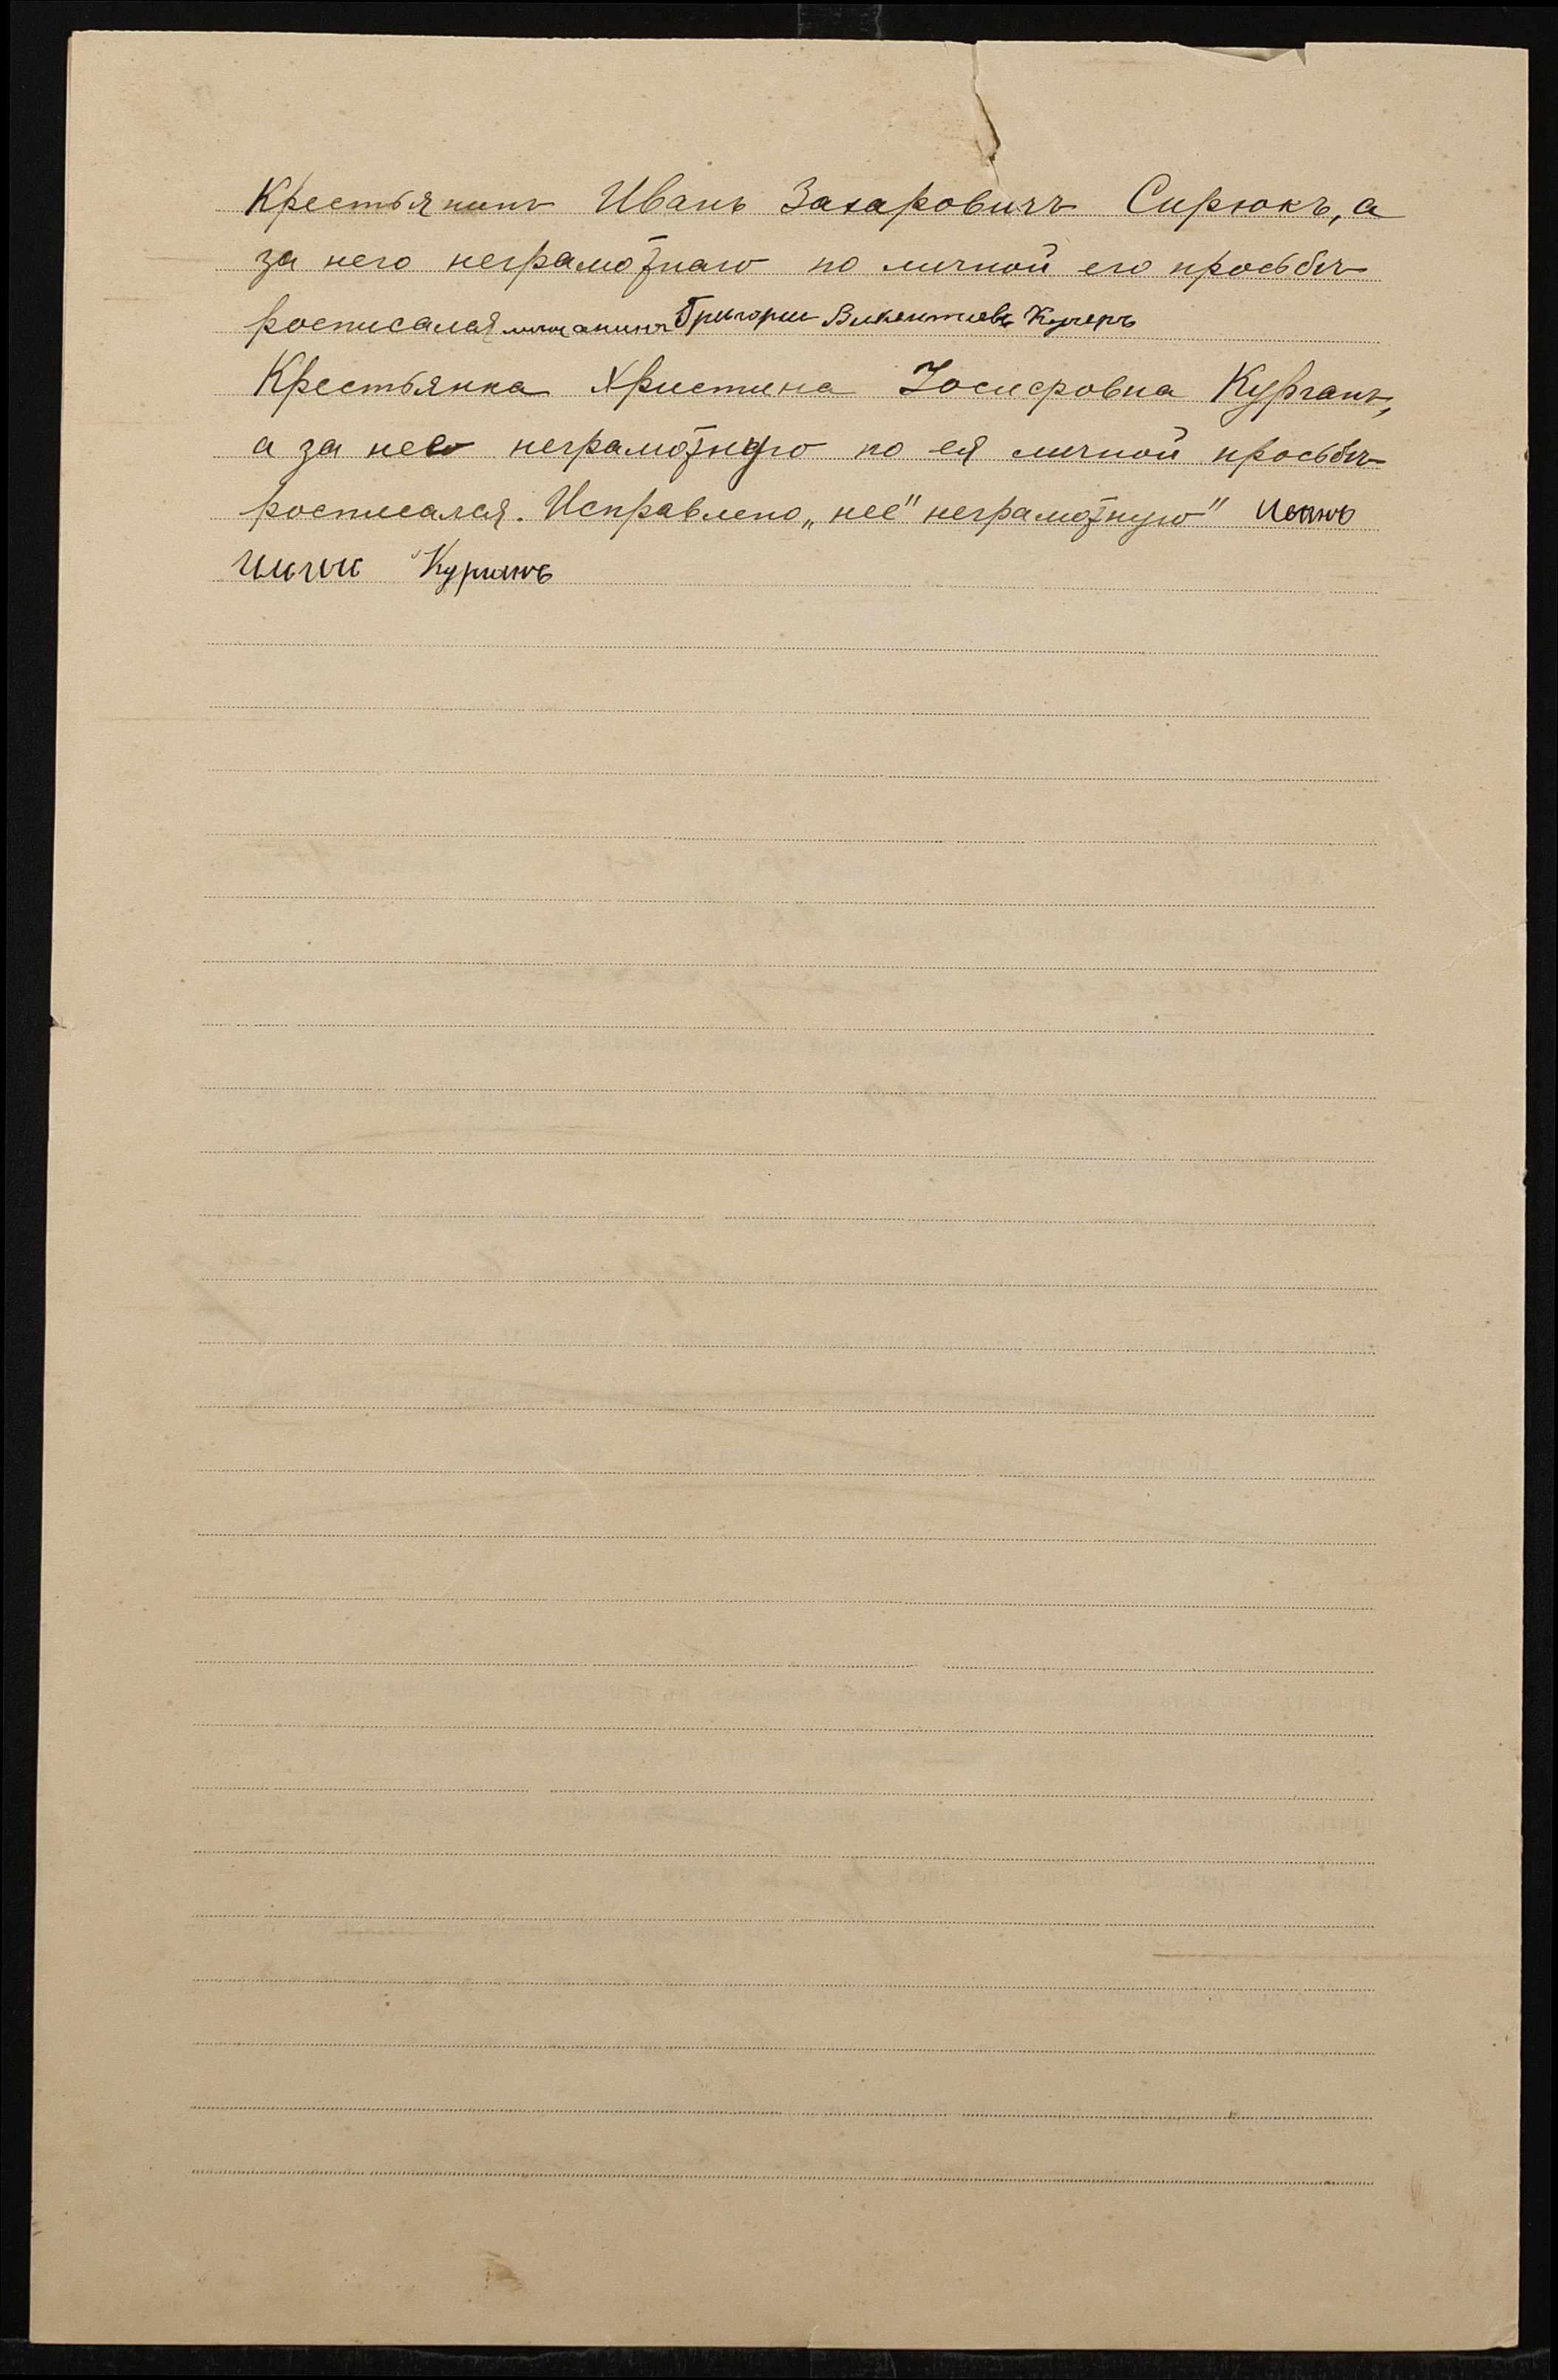 Крестьянинъ Иванъ Захаровичъ Сирюкъ, а
за него неграмотнаго по личной его просьбѣ
росписался мѣщанинъ Григории Викентиевъ Кучеръ
Крестьянка Христина Іосифовна Курганъ,
а за нее неграмотную по ея личной просьбѣ
росписался. Исправлено „нее" неграмотную"